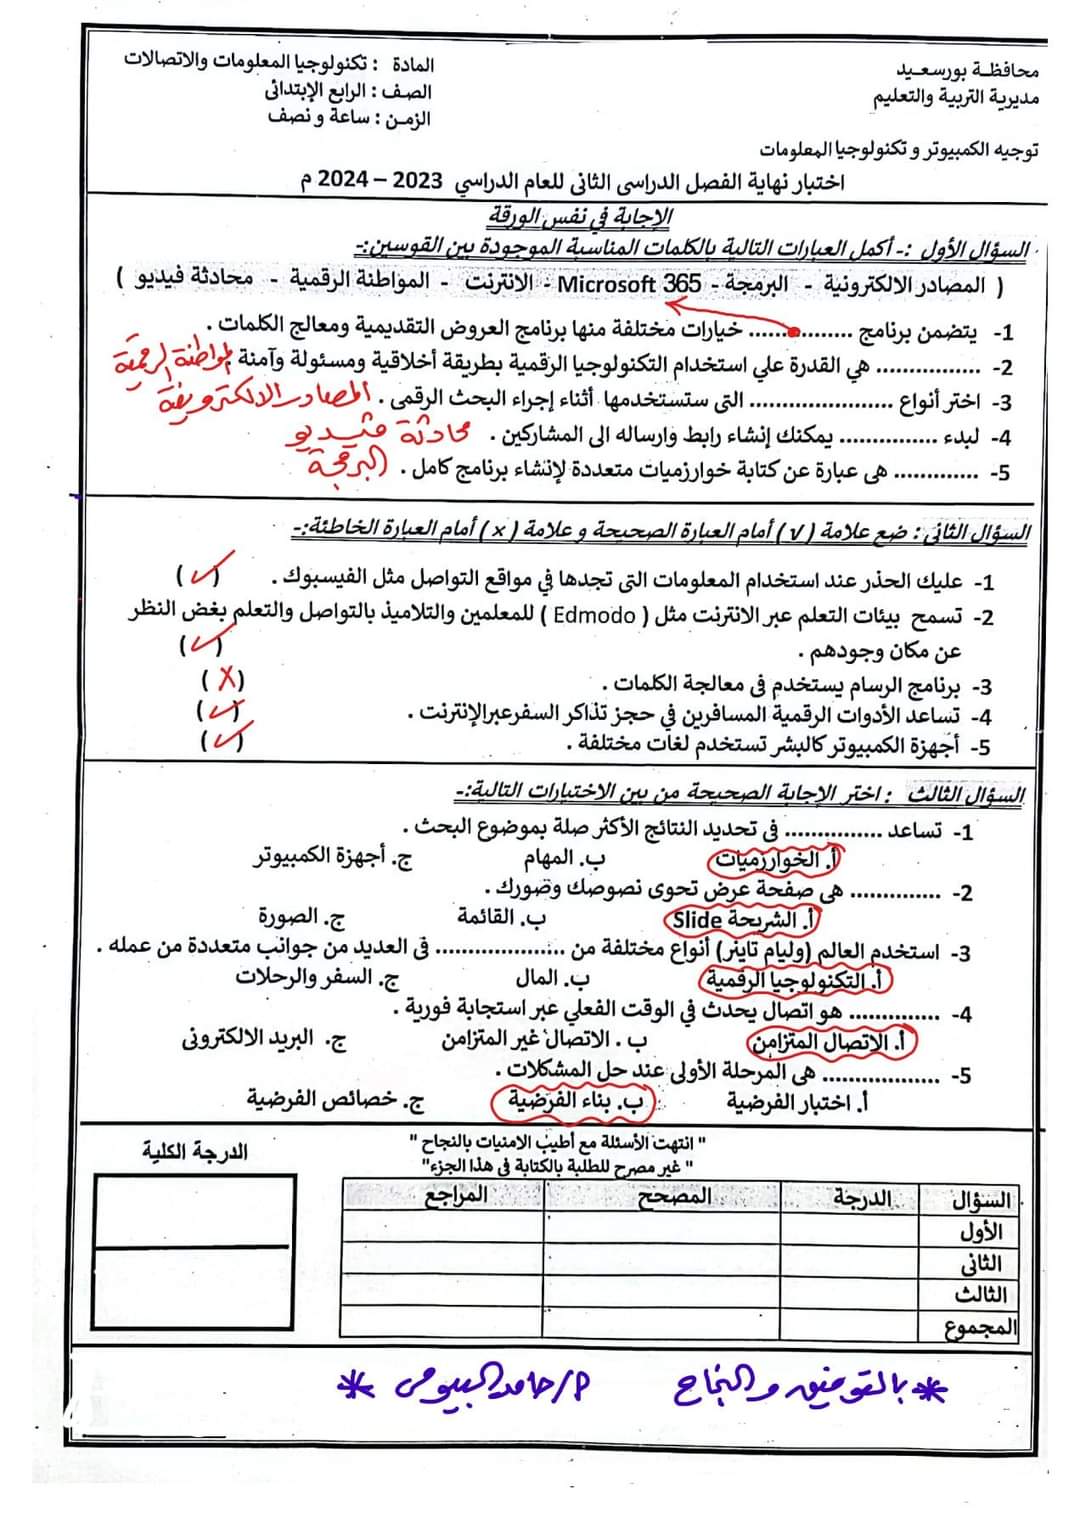 محافظة بورسعيد
مديرية التربية والتعليم
توجيه الكمبيوتر و تكنولوجيا المعلومات
المادة : تكنولوجيا المعلومات والاتصالات
الصف : الرابع الإبتدائى
الزمن : ساعة و نصف
اختبار نهاية الفصل الدراسى الثانى للعام الدراسي 2023 – 2024 م
الإجابة في نفس الورقة
السؤال الأول :- أكمل العبارات التالية بالكلمات المناسبة الموجودة بين القوسين:-
( المصادر الالكترونية - البرمجة - Microsoft 365 - الانترنت - المواطنة الرقمية - محادثة فيديو )
1- يتضمن برنامج ................ خيارات مختلفة منها برنامج العروض التقديمية ومعالج الكلمات .
2- ................ هي القدرة علي استخدام التكنولوجيا الرقمية بطريقة أخلاقية ومسئولة وآمنة المواطنة الرقمية
3- اختر أنواع ...................... التى ستستخدمها أثناء إجراء البحث الرقمى . المصادر الالكترونية
4- لبدء ............... يمكنك إنشاء رابط وارساله الى المشاركين . محادثة فيديو
5- ............. هى عبارة عن كتابة خوارزميات متعددة لإنشاء برنامج كامل . البرمجة
السؤال الثانى : ضع علامة ( √ ) أمام العبارة الصحيحة و علامة ( x ) أمام العبارة الخاطئة:-
1- عليك الحذر عند استخدام المعلومات التى تجدها في مواقع التواصل مثل الفيسبوك . (✓)
2- تسمح بيئات التعلم عبر الانترنت مثل ( Edmodo ) للمعلمين والتلاميذ بالتواصل والتعلم بغض النظر
عن مكان وجودهم . (✓)
3- برنامج الرسام يستخدم فى معالجة الكلمات . (X)
4- تساعد الأدوات الرقمية المسافرين في حجز تذاكر السفر عبر الإنترنت . (✓)
5- أجهزة الكمبيوتر كالبشر تستخدم لغات مختلفة . (✓)
السؤال الثالث : اختر الإجابة الصحيحة من بين الاختيارات التالية:-
1- تساعد ............... فى تحديد النتائج الأكثر صلة بموضوع البحث .
أ. الخوارزميات ب. المهام ج. أجهزة الكمبيوتر
2- .............. هى صفحة عرض تحوى نصوصك وصورك .
أ. الشريحة Slide ب. القائمة ج. الصورة
3- استخدم العالم (وليام تاينر) أنواع مختلفة من .................... فى العديد من جوانب متعددة من عمله .
أ. التكنولوجيا الرقمية ب. المال ج. السفر والرحلات
4- .............. هو اتصال يحدث في الوقت الفعلي عبر استجابة فورية .
أ. الاتصال المتزامن ب . الاتصال غير المتزامن ج. البريد الالكترونى
5- .................. هى المرحلة الأولى عند حل المشكلات .
أ. اختبار الفرضية ب. بناء الفرضية ج. خصائص الفرضية
" انتهت الأسئلة مع أطيب الامنيات بالنجاح "
" غير مصرح للطلبة بالكتابة فى هذا الجزء"
الدرجة الكلية
السؤال الدرجة المصحح المراجع
الأول
الثانى
الثالث
المجموع
* بالتوفيق والنجاح م/حامد البيومى *